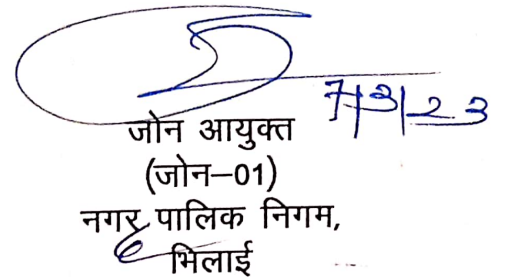 7/3/23
जोन आयुक्त
(जोन–01)
नगर पालिक निगम,
भिलाई